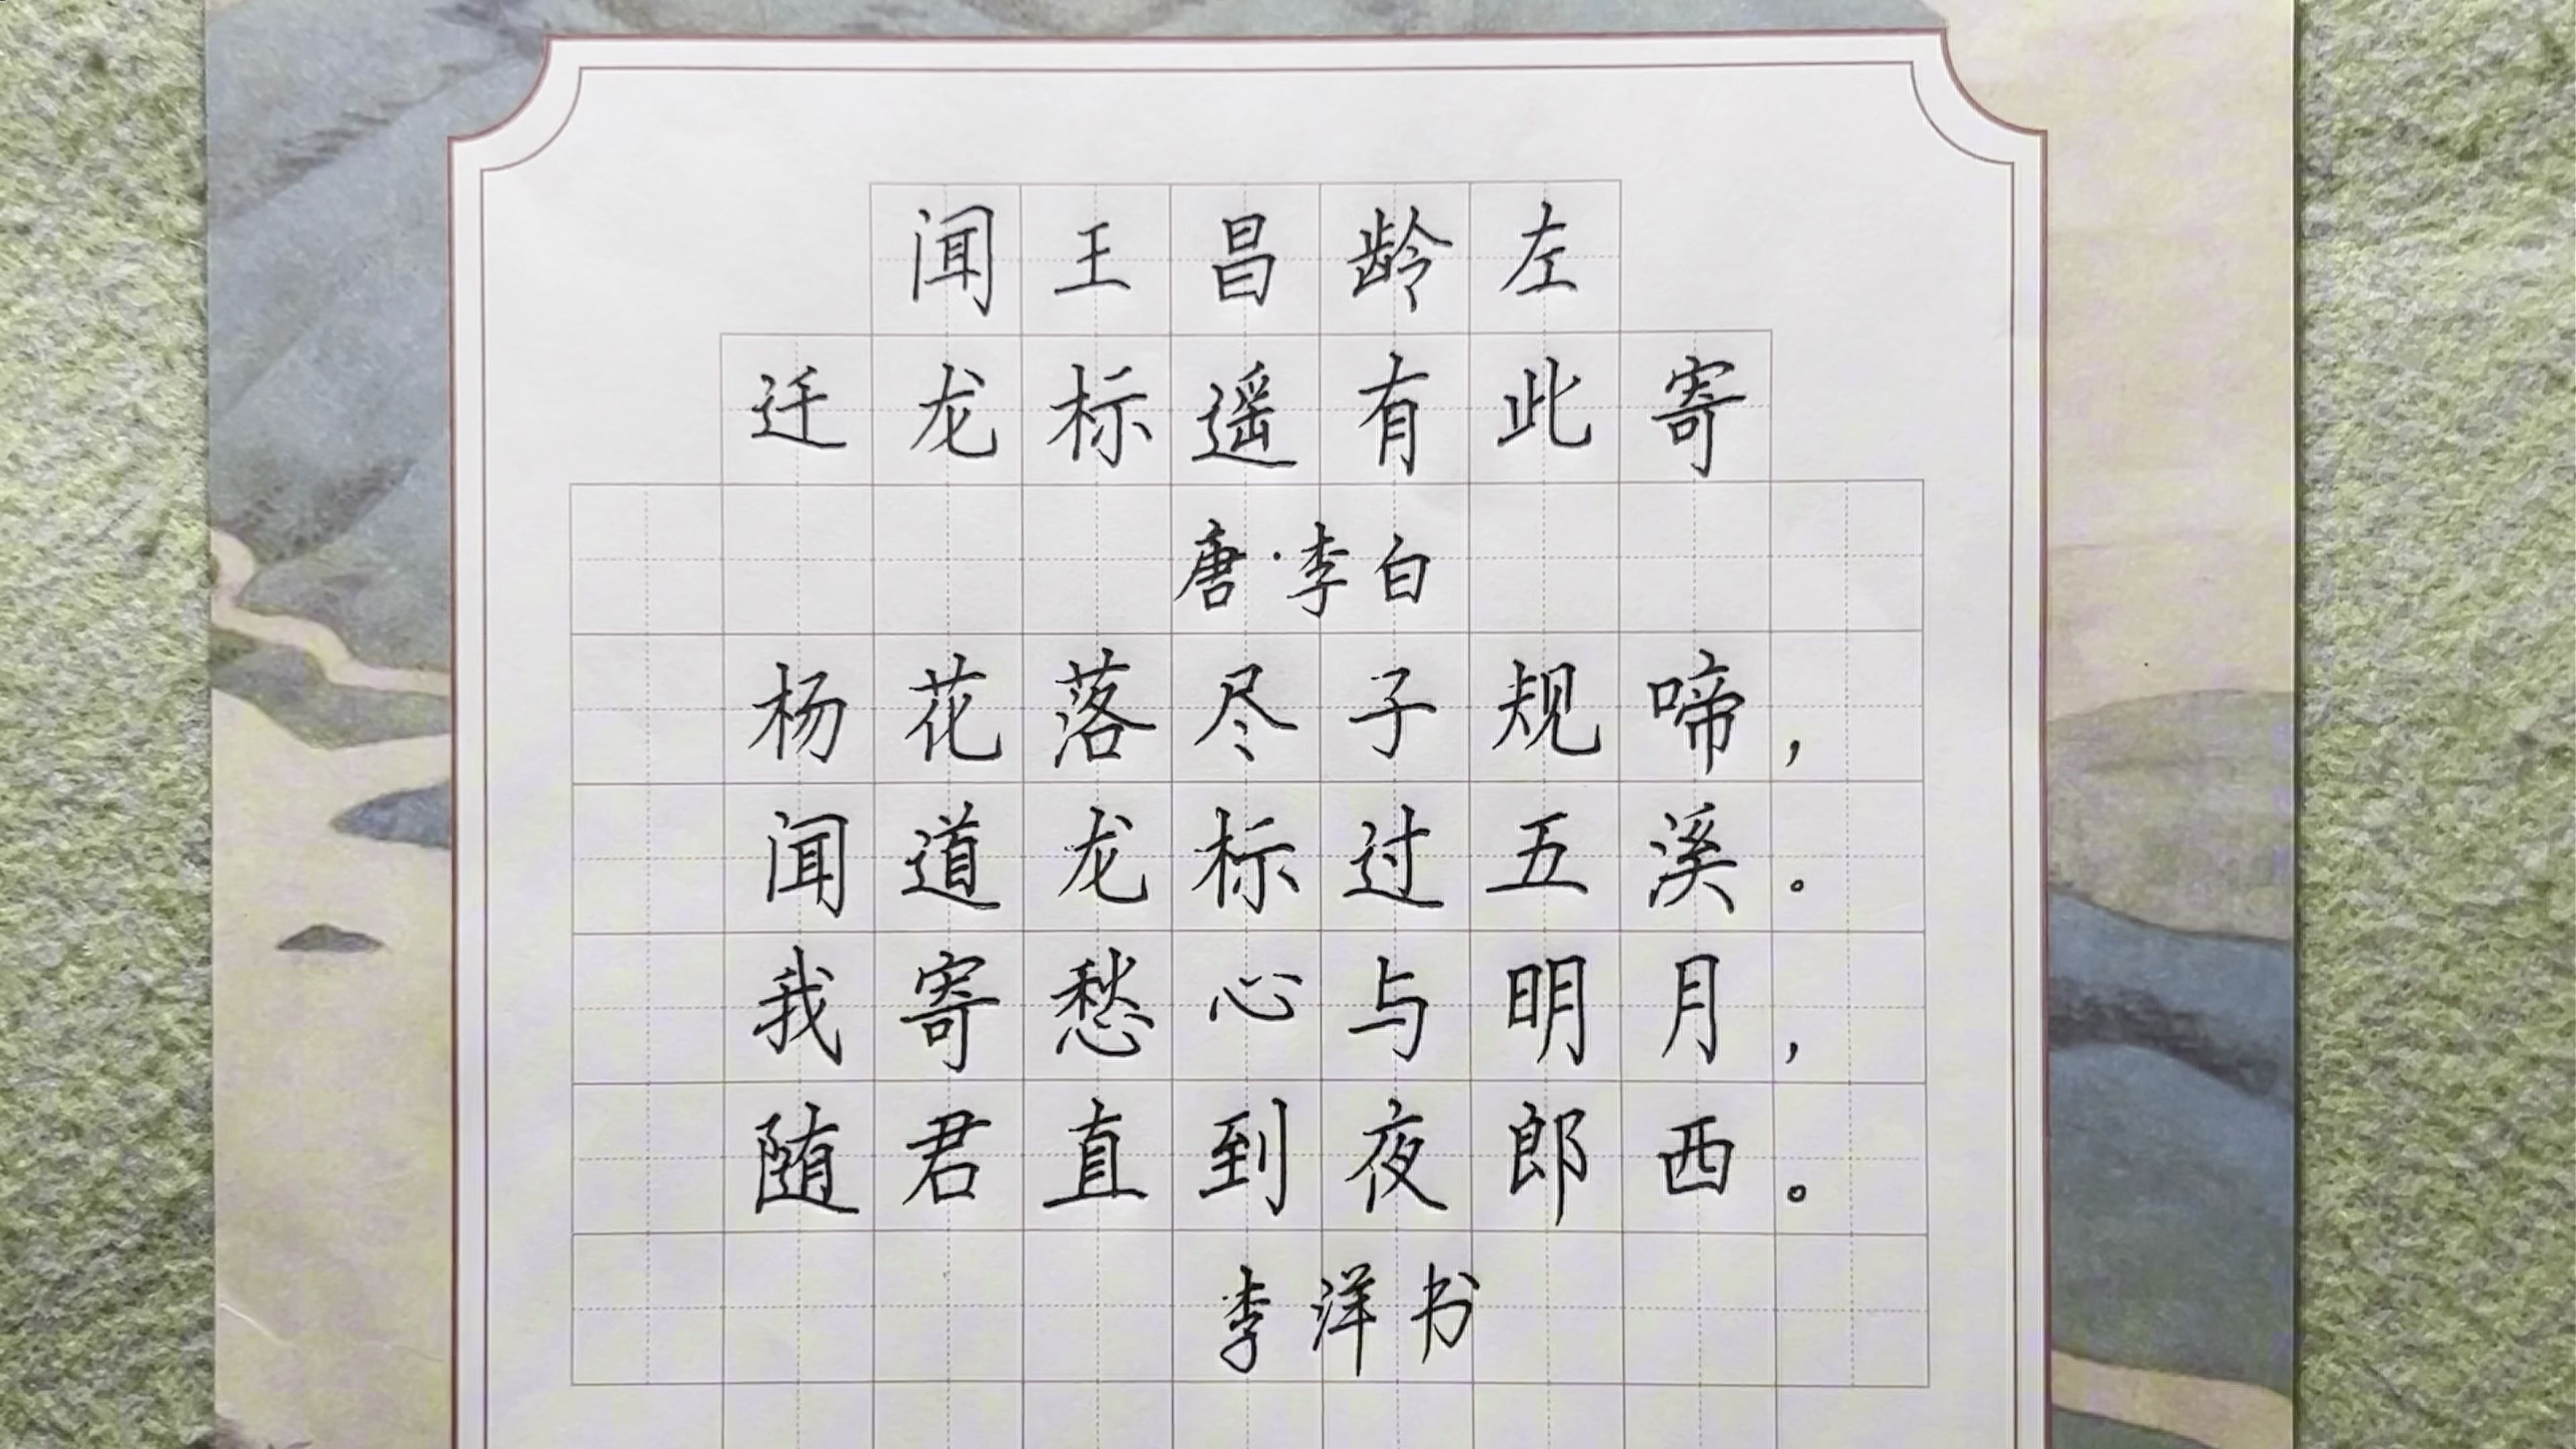 闻王昌龄左
迁龙标遥有此寄
唐·李白
杨花落尽子规啼，
闻道龙标过五溪。
我寄愁心与明月，
随君直到夜郎西。
李洋书